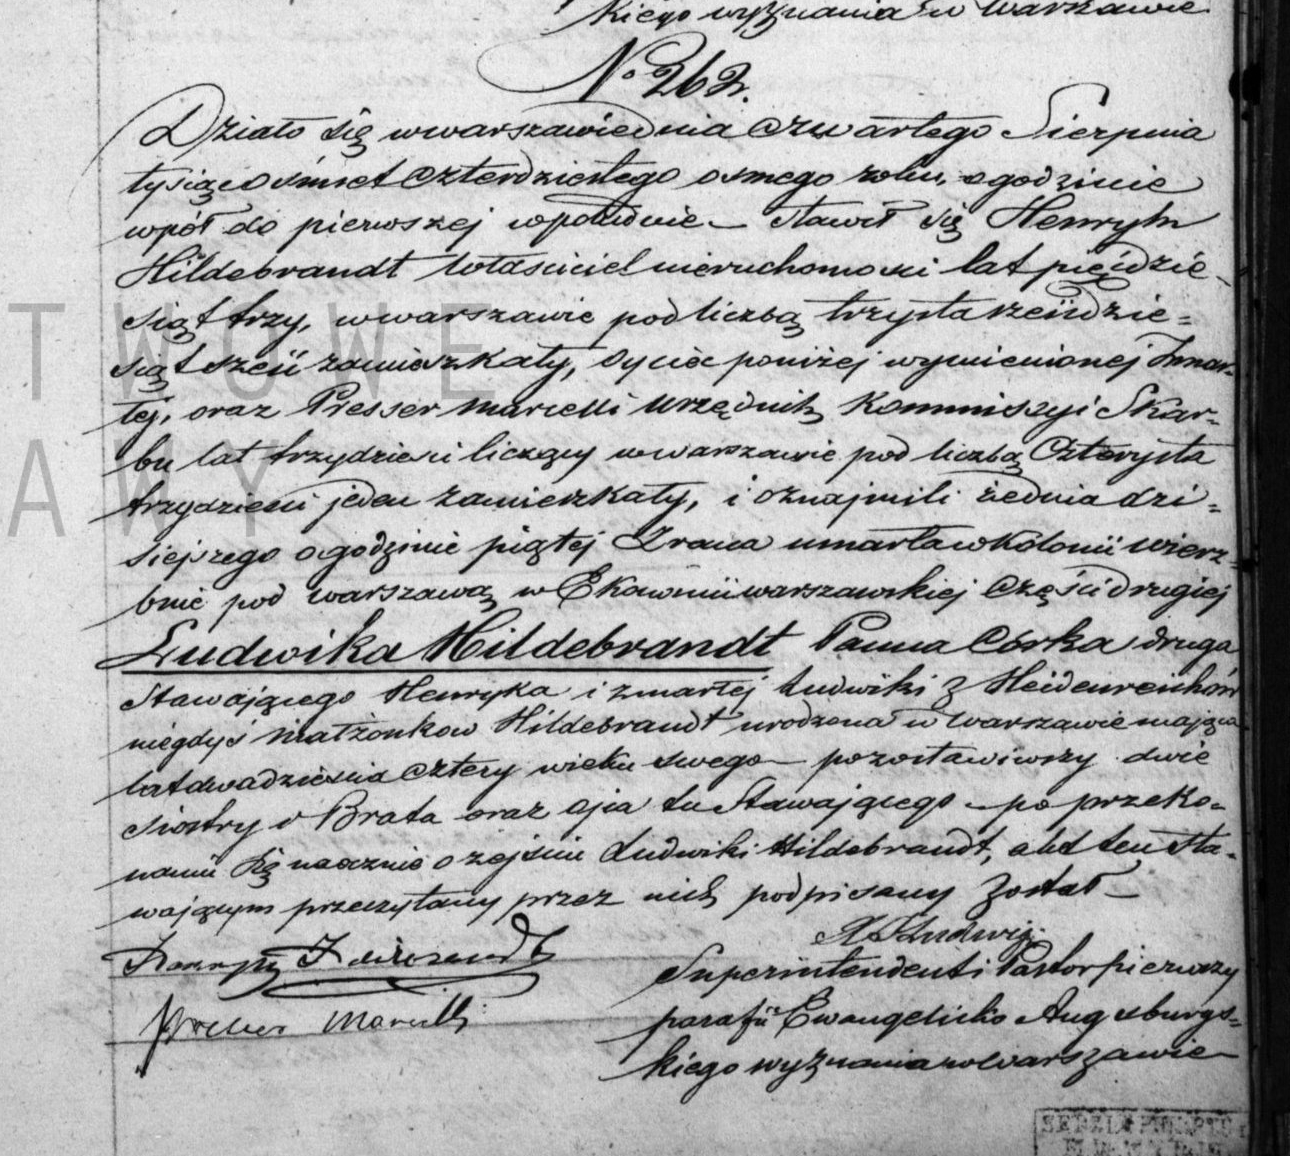 kiego wyznania w Warszawie
No 262.
Działo się w Warszawie dnia Czwartego Sierpnia
tysiąc ośmset Czterdziestego osmego roku, o godzinie
wpół do pierwszej w południe – stawił się Henryk
Hildebrandt właściciel nieruchomości lat pięćdzie-
siąt trzy, w Warszawie pod liczbą trzysta sześćdzie=
siąt sześć zamieszkały, oyciec poniżej wymienionej Zmar-
łej, oraz Presser Marcelli Urzędnik Kommissyi Skar-
bu lat trzydzieści liczący w Warszawie pod liczbą Czterysta
trzydzieści jeden zamieszkały, i oznajmili że dnia dzi=
siejszego o godzinie piątej Zrana umarła w Kolonii Wierz=
bnie pod Warszawą w Ekonomii warszawskiej Części drugiej
Ludwika Hildebrandt Panna Córka druga
Stawającego Henryka i zmarłej Ludwiki z Heidenreichów
niegdyś Małżonków Hildebrandt urodzona w Warszawie mająca
lat dwadzieścia Cztery wieku swego – pozostawiwszy dwie
siostry i Brata oraz ojca tu Stawającego – po przeko-
naniu się naocznie o zejściu Ludwiki Hildebrandt, akt ten sta-
wającym przeczytany przez nich podpisany został –
Ludwig
Superintendent i Pastor pierwszy
parafii Ewangelicko Augsburgs=
kiego wyznania w Warszawie –
Henryk Hildebrandt
Presser Marcelli
TWOWE
AWY